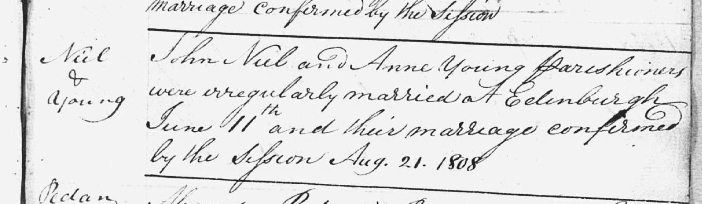 marriage confirmed by the Session
Niel
&
Young
John Niel and Anne Young parishioners
were irregularly married at Edinburgh
June 11th and their marriage confirmed
by the Session Aug. 21. 1808
Pedan